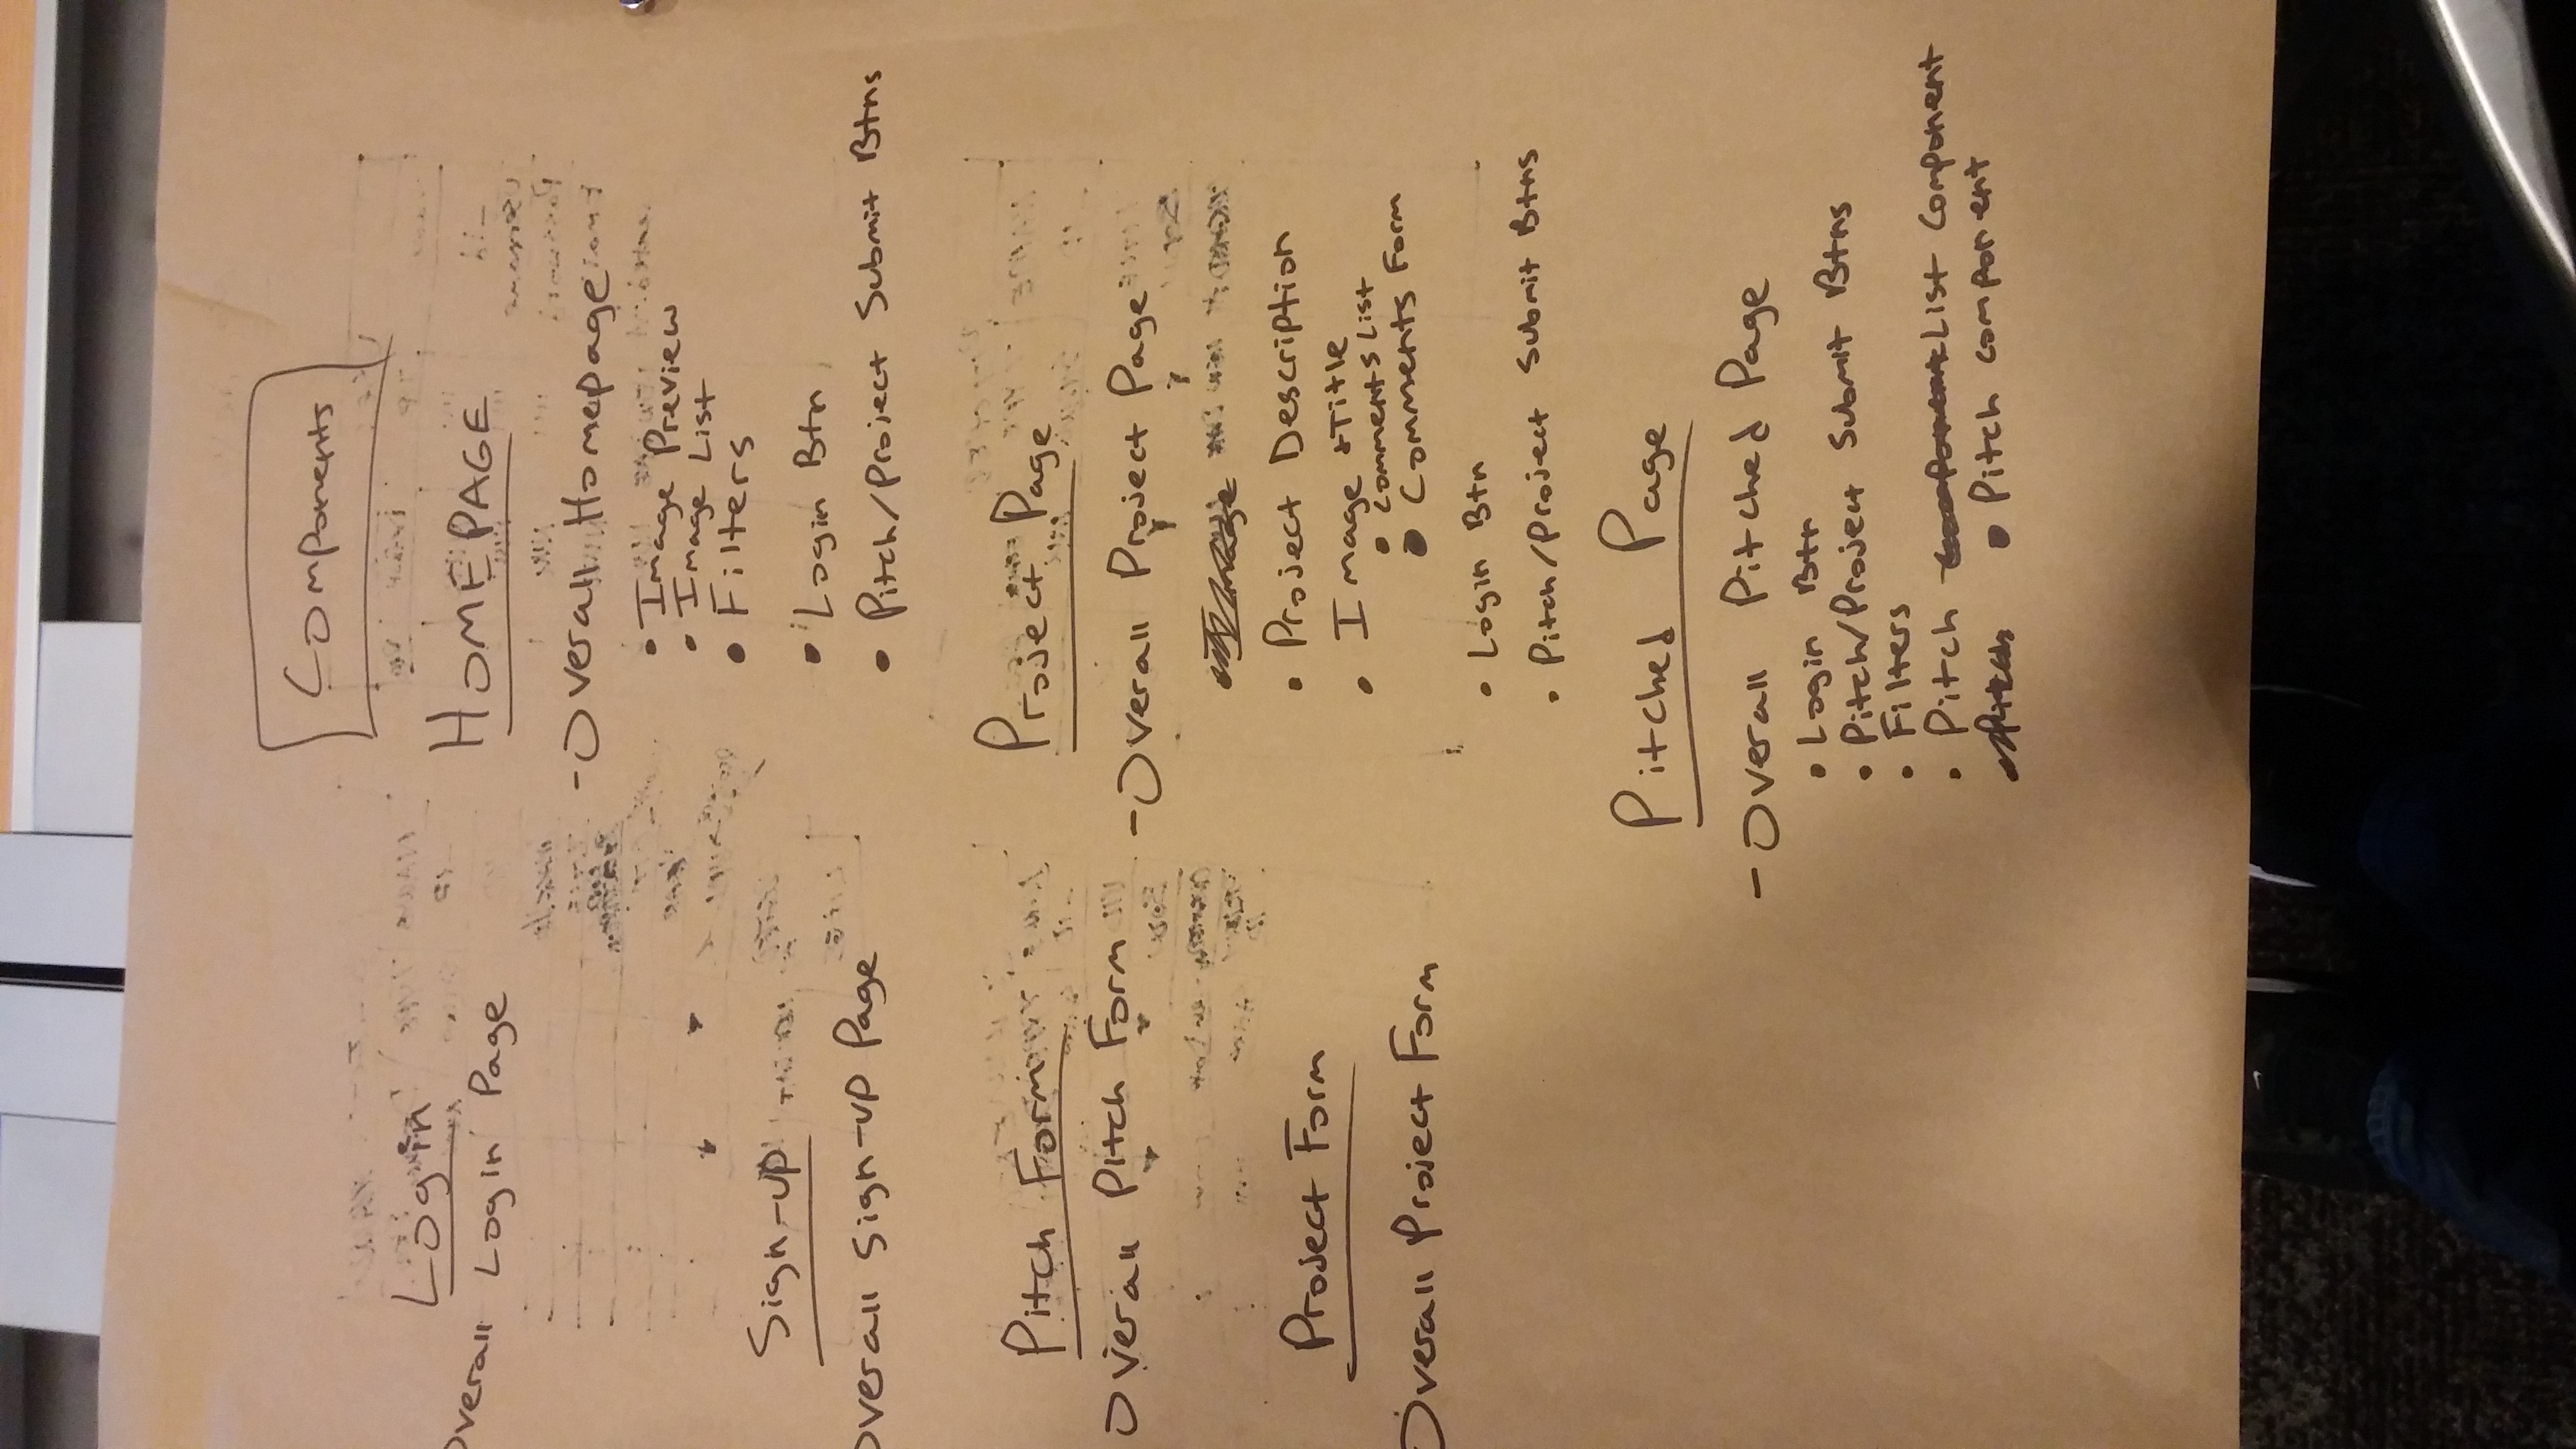 Components
Login
Overall Login Page
Sign-up
Overall Sign-up Page
Pitch Form
Overall Pitch Form
Project Form
Overall Project Form
HOMEPAGE
- Overall Homepage
• Image Preview
• Image List
• Filters
• Login Btn
• Pitch/Project Submit Btns
Project Page
- Overall Project Page
• Project Description
• Image + Title
• Comments List
• Comments Form
• Login Btn
• Pitch/Project Submit Btns
Pitched Page
- Overall Pitched Page
• Login Btn
• Pitch/Project Submit Btns
• Filters
• Pitch List Component
• Pitch component